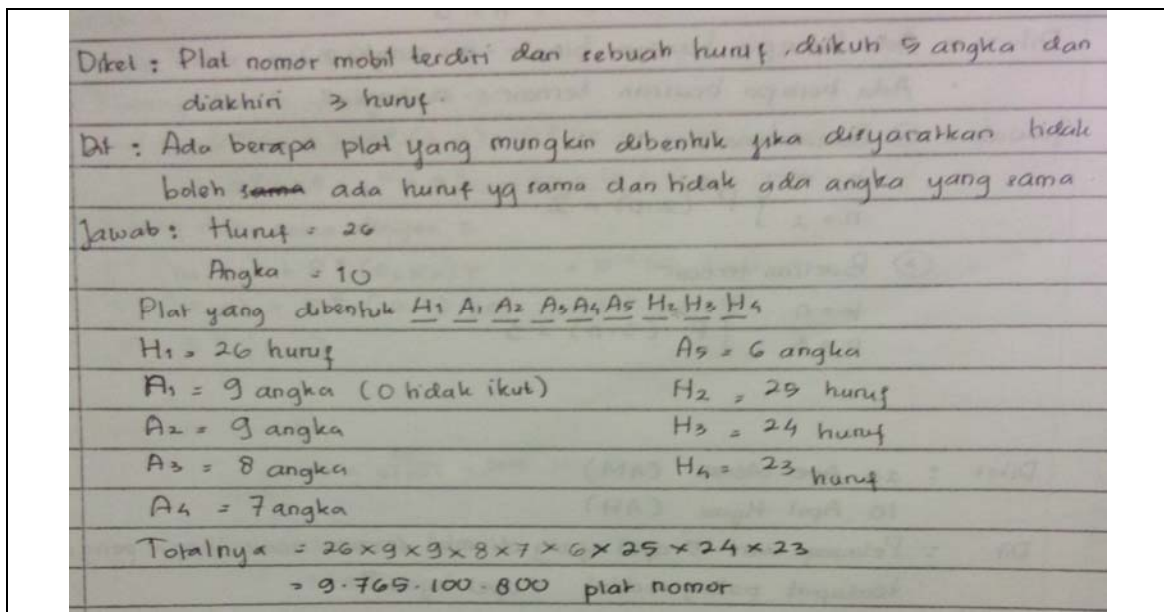 Diket : Plat nomor mobil terdiri dari sebuah huruf, diikuti 5 angka dan
diakhiri 3 huruf.
Dit : Ada berapa plat yang mungkin dibentuk jika disyaratkan tidak
boleh sama ada huruf yg sama dan tidak ada angka yang sama
Jawab : Huruf = 26
Angka = 10
Plat yang dibentuk H1 A1 A2 A3 A4 A5 H2 H3 H4
H1 = 26 huruf A5 = 6 angka
A1 = 9 angka (0 tidak ikut) H2 = 25 huruf
A2 = 9 angka H3 = 24 huruf
A3 = 8 angka H4 = 23 huruf
A4 = 7 angka
Totalnya = 26 × 9 × 9 × 8 × 7 × 6 × 25 × 24 × 23
= 9.765.100.800 plat nomor